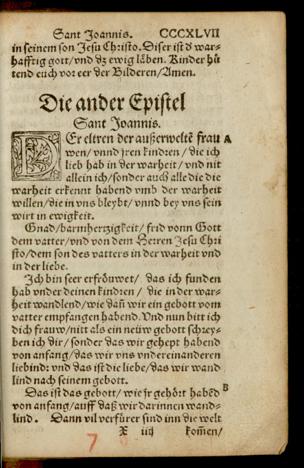 Sant Joannis. CCCXLVII
in seinem son Jesu Christo. Diser ist d̕ war-
hafftig gott/vnd dz ewig läben. Kinder hü
tend euch vor eer der Bilderen/Amen.
Die ander Epistel
Sant Joannis.
DEr eltren der außerweltẽ frau A
wen/vnnd jren kindren/die ich
lieb hab in der warheit/vnd nit
allein ich/sonder auch alle die die
warheit erkennt habend vmb der warheit
willen/die in vns bleybt/vnnd bey vns sein
wirt in ewigkeit.
Gnad/barmhertzigkeit/frid vonn Gott
dem vatter/vnd von dem Herren Jesu Chri
sto/dem son des vatters in der warheit vnd
in der liebe.
Ich bin seer erfröuwet/ das ich funden
hab vnder deinen kindren/ die in der war-
heit wandlend/wie dañ wir ein gebott vom
vatter empfangen habend. Vnd nun bitt ich
dich frauw/nitt als ein neüw gebott schrey-
ben ich dir/sonder das wir gehept habend
von anfang/das wir vns vndereinanderen
liebind: vnd das ist die liebe/das wir wand
lind nach seinem gebott.
Das ist das gebott/ wie jr gehört habẽd B
von anfang/auff daß wir darinnen wand-
lind. Dann vil verfürer sind inn die welt
X iiij kom̃en/
7